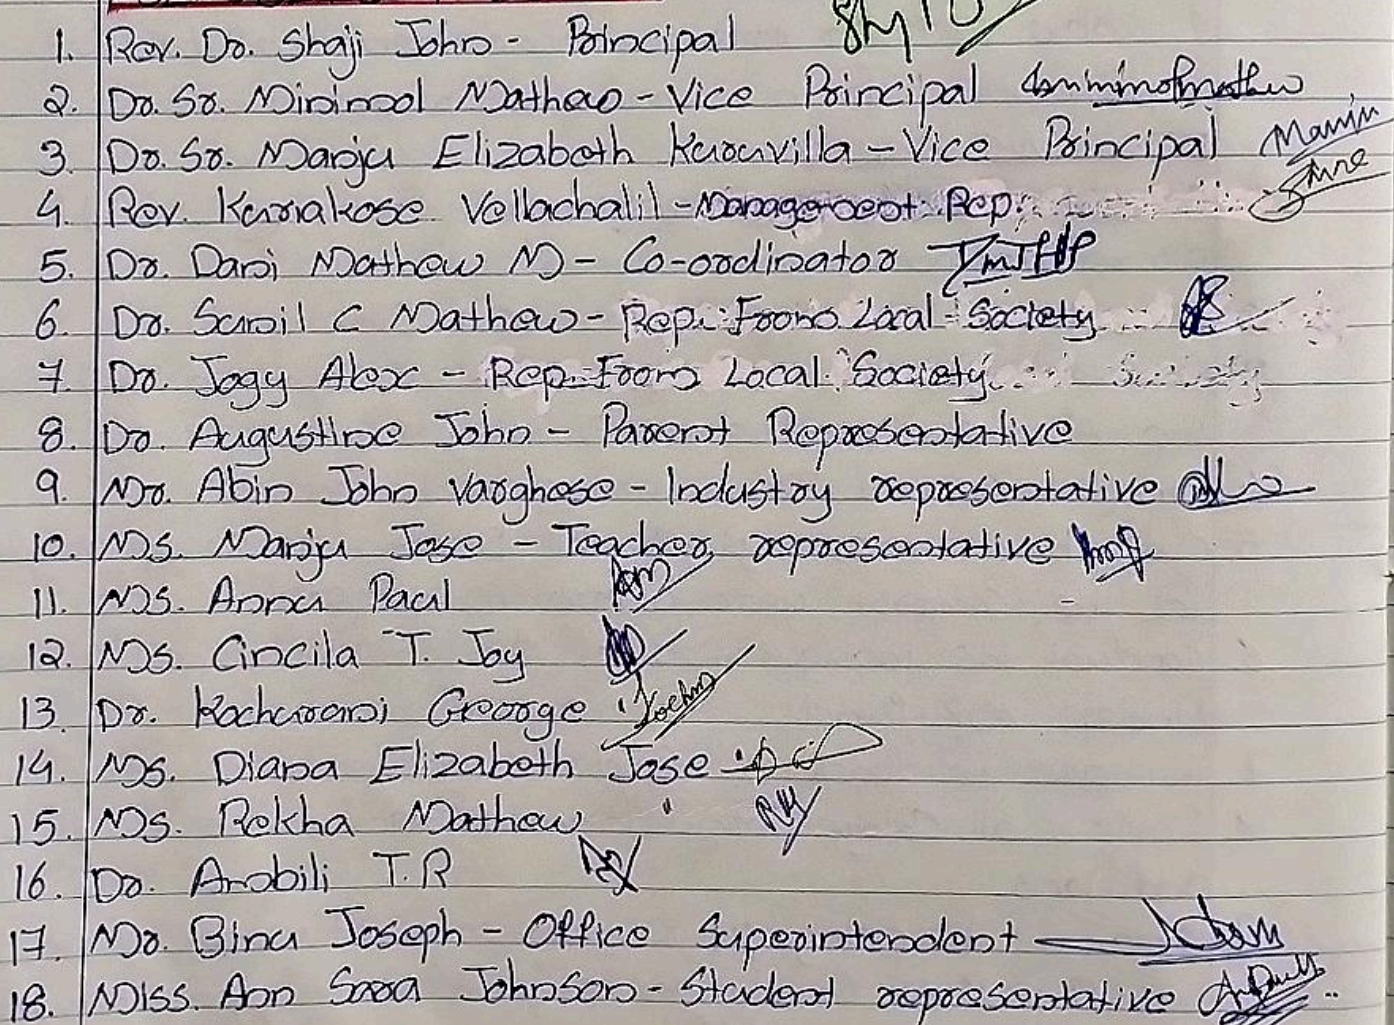 1. Rev. Dr. Shaji John - Principal
2. Dr. Sr. Minimol Mathew - Vice Principal
3. Dr. Sr. Manju Elizabeth Kuruvilla - Vice Principal
4. Rev. Kuriakose Vellachalil - Management Rep.
5. Dr. Dani Mathew M - Co-ordinator
6. Dr. Sunil C Mathew - Rep. From Local Society
7. Dr. Jogy Alex - Rep. From Local Society
8. Dr. Augustine John - Parent Representative
9. Mr. Abin John Varghese - Industry representative
10. Ms. Manju Jose - Teacher representative
11. Ms. Annu Paul
12. Ms. Cincila T. Joy
13. Dr. Kochurani George
14. Ms. Diana Elizabeth Jose
15. Ms. Rekha Mathew
16. Dr. Ambili T.R
17. Mr. Binu Joseph - Office Superintendent
18. Miss. Ann Sara Johnson - Student representative